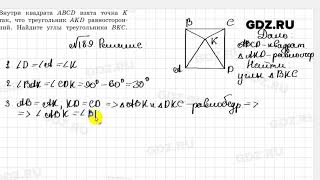 Внутри квадрата ABCD взята точка K
так, что треугольник AKD равносторон-
ний. Найдите углы треугольника BKC.
GDZ.RU
№189. Решение
Дано
ABCD-квадрат
△AKD-равностор
Найти
углы △BKC
B C
K
A D
1. ∠D=∠A=∠K
2. ∠BAK=∠CDK=90°-60°=30°
3. AB=AK, KD=CD=>△ABK и △DKC-равнобедр=>
=> ∠ABK=∠B